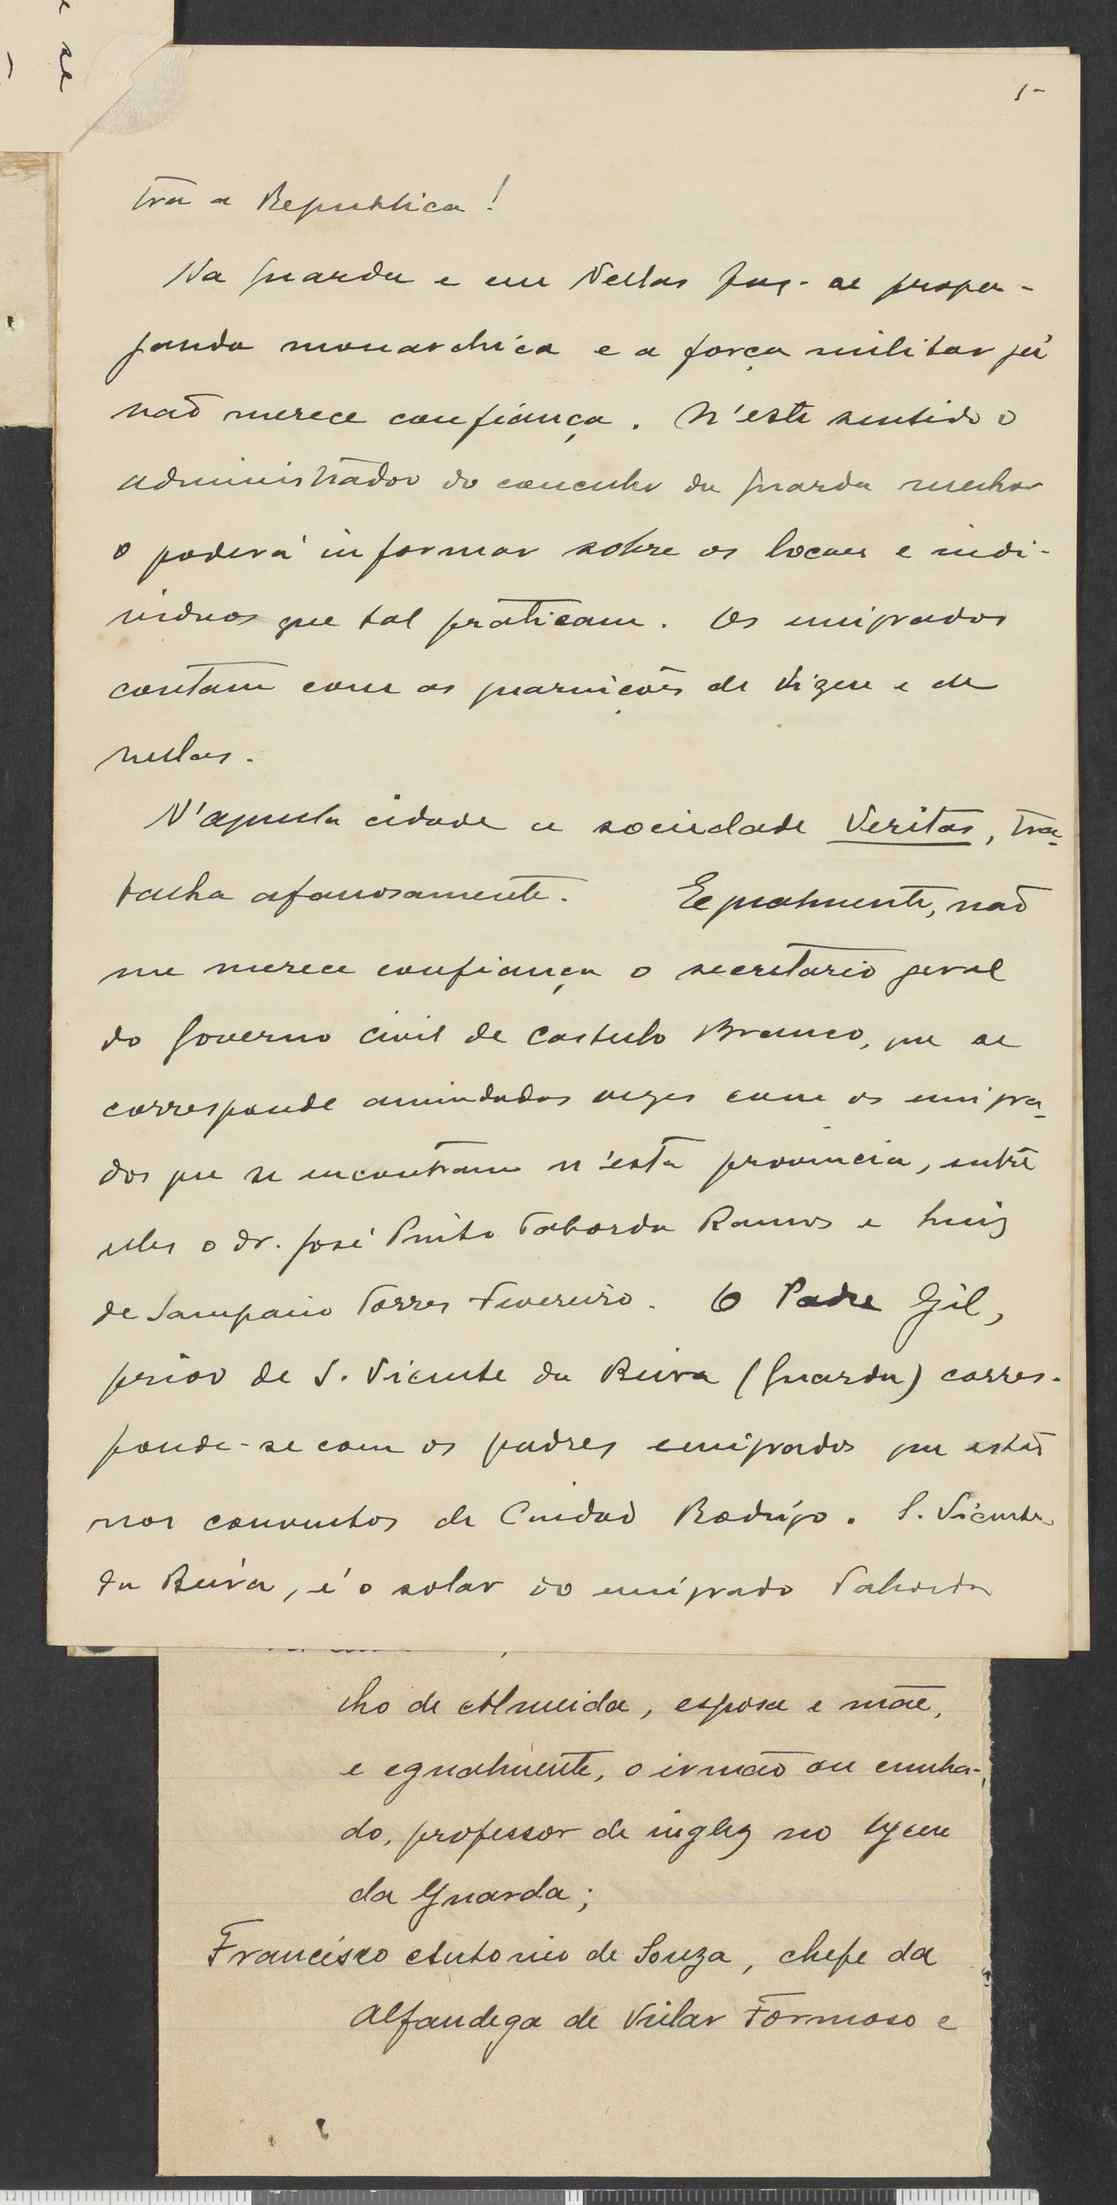 se
5
tra a Republica!
Na Guarda e em Nellas faz-se propa-
ganda monarchica e a força militar já
não merece confiança. N'este sentido o
administrador do concelho da Guarda melhor
o poderá informar sobre os locaes e indi-
viduos que tal praticam. Os emigrados
contam com as guarnições de Vizeu e de
Nellas.
N'aquela cidade a sociedade Veritas, tra-
balha afanosamente. Egualmente, não
me merece confiança o secretario geral
do Governo Civil de Castello Branco, que se
corresponde amiudadas vezes com os emigra-
dos que se encontram n'esta provincia, entre
elles o dr. José Pinto Taborda Ramos e Luiz
de Sampaio Torres Fevereiro. O Padre Gil,
prior de S. Vicente da Beira (Guarda) corres-
ponde-se com os padres emigrados que estão
nos conventos de Ciudad Rodrigo. S. Vicente
da Beira, é o solar do emigrado Taborda
lho de Almeida, esposa e mãe,
e egualmente, o irmão ou cunha-
do, professor de inglez no lyceu
da Guarda;
Francisco Antonio de Souza, chefe da
Alfandega de Vilar Formoso e